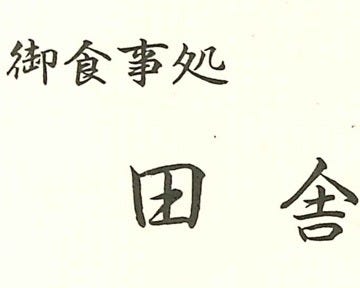 御食事処
田舎